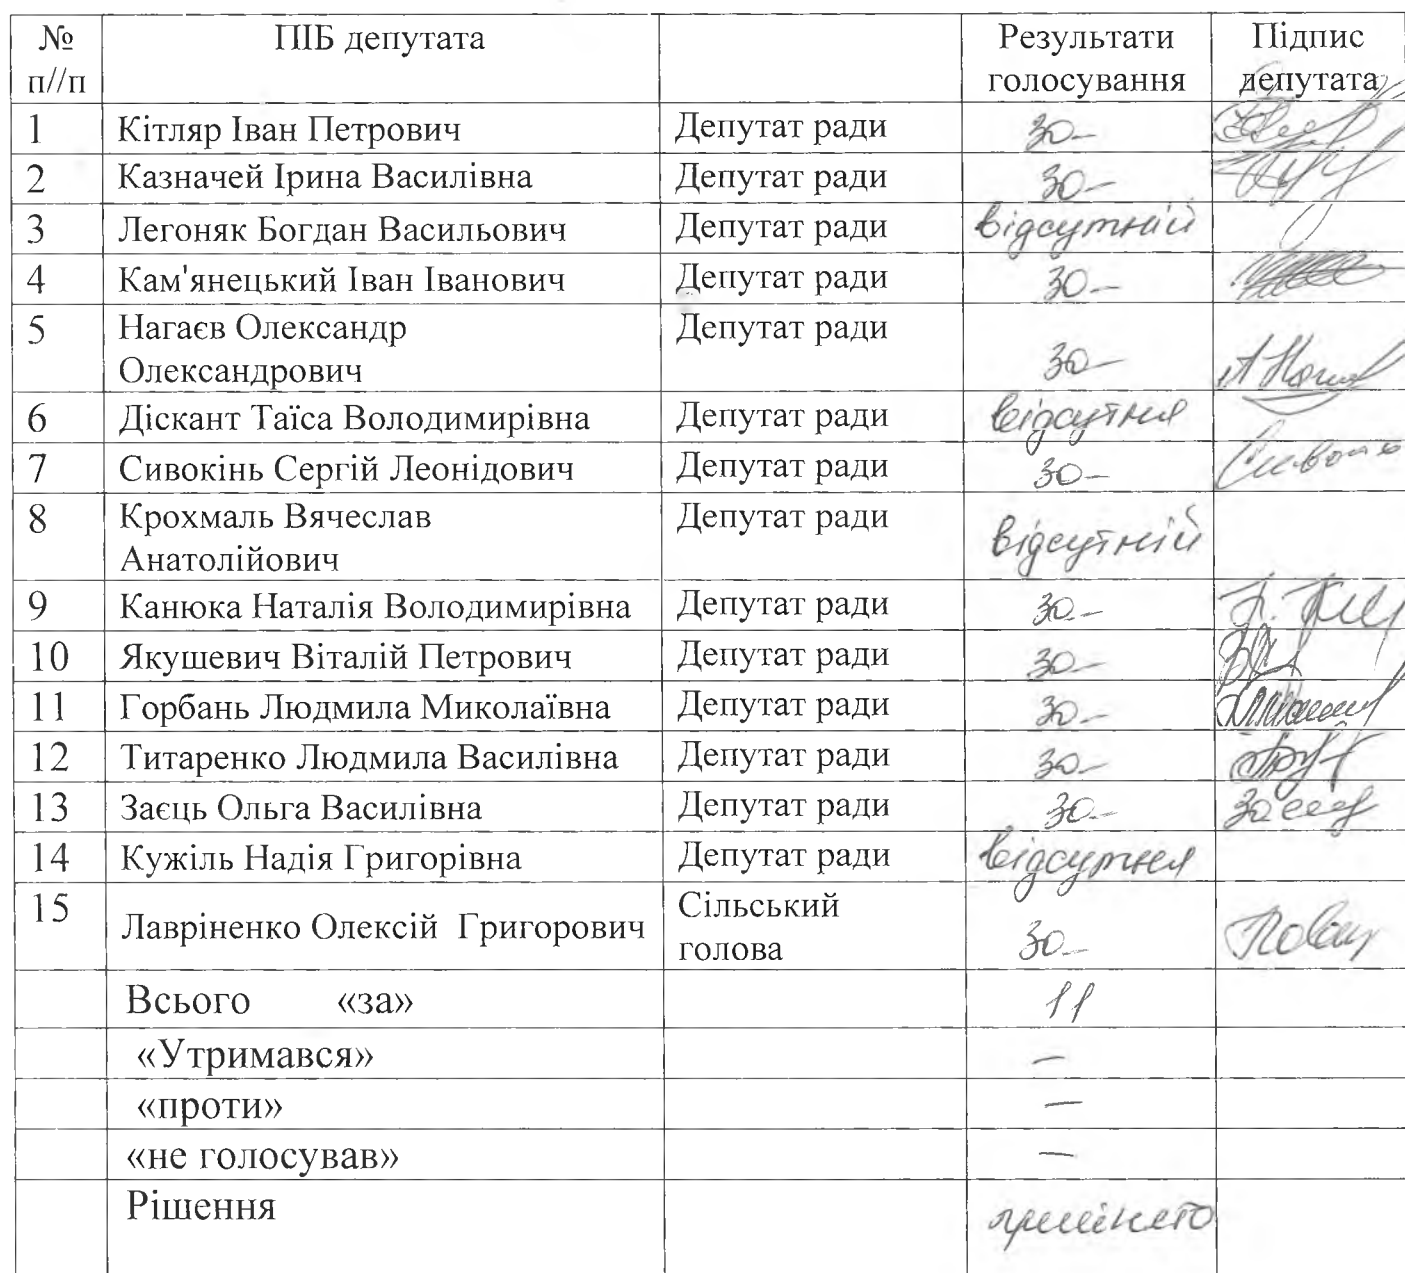 № п//п ПІБ депутата Результати голосування Підпис депутата
1 Кітляр Іван Петрович Депутат ради За-
2 Казначей Ірина Василівна Депутат ради За-
3 Легоняк Богдан Васильович Депутат ради відсутній
4 Кам'янецький Іван Іванович Депутат ради За-
5 Нагаєв Олександр Депутат ради
Олександрович За-
6 Діскант Таїса Володимирівна Депутат ради відсутня
7 Сивокінь Сергій Леонідович Депутат ради За-
8 Крохмаль Вячеслав Депутат ради
Анатолійович відсутній
9 Канюка Наталія Володимирівна Депутат ради За-
10 Якушевич Віталій Петрович Депутат ради За-
11 Горбань Людмила Миколаївна Депутат ради За-
12 Титаренко Людмила Василівна Депутат ради За-
13 Заєць Ольга Василівна Депутат ради За-
14 Кужіль Надія Григорівна Депутат ради відсутня
15 Лавріненко Олексій Григорович Сільський голова За-
Всього «за» 11
«Утримався» —
«проти» —
«не голосував» —
Рішення прийнято